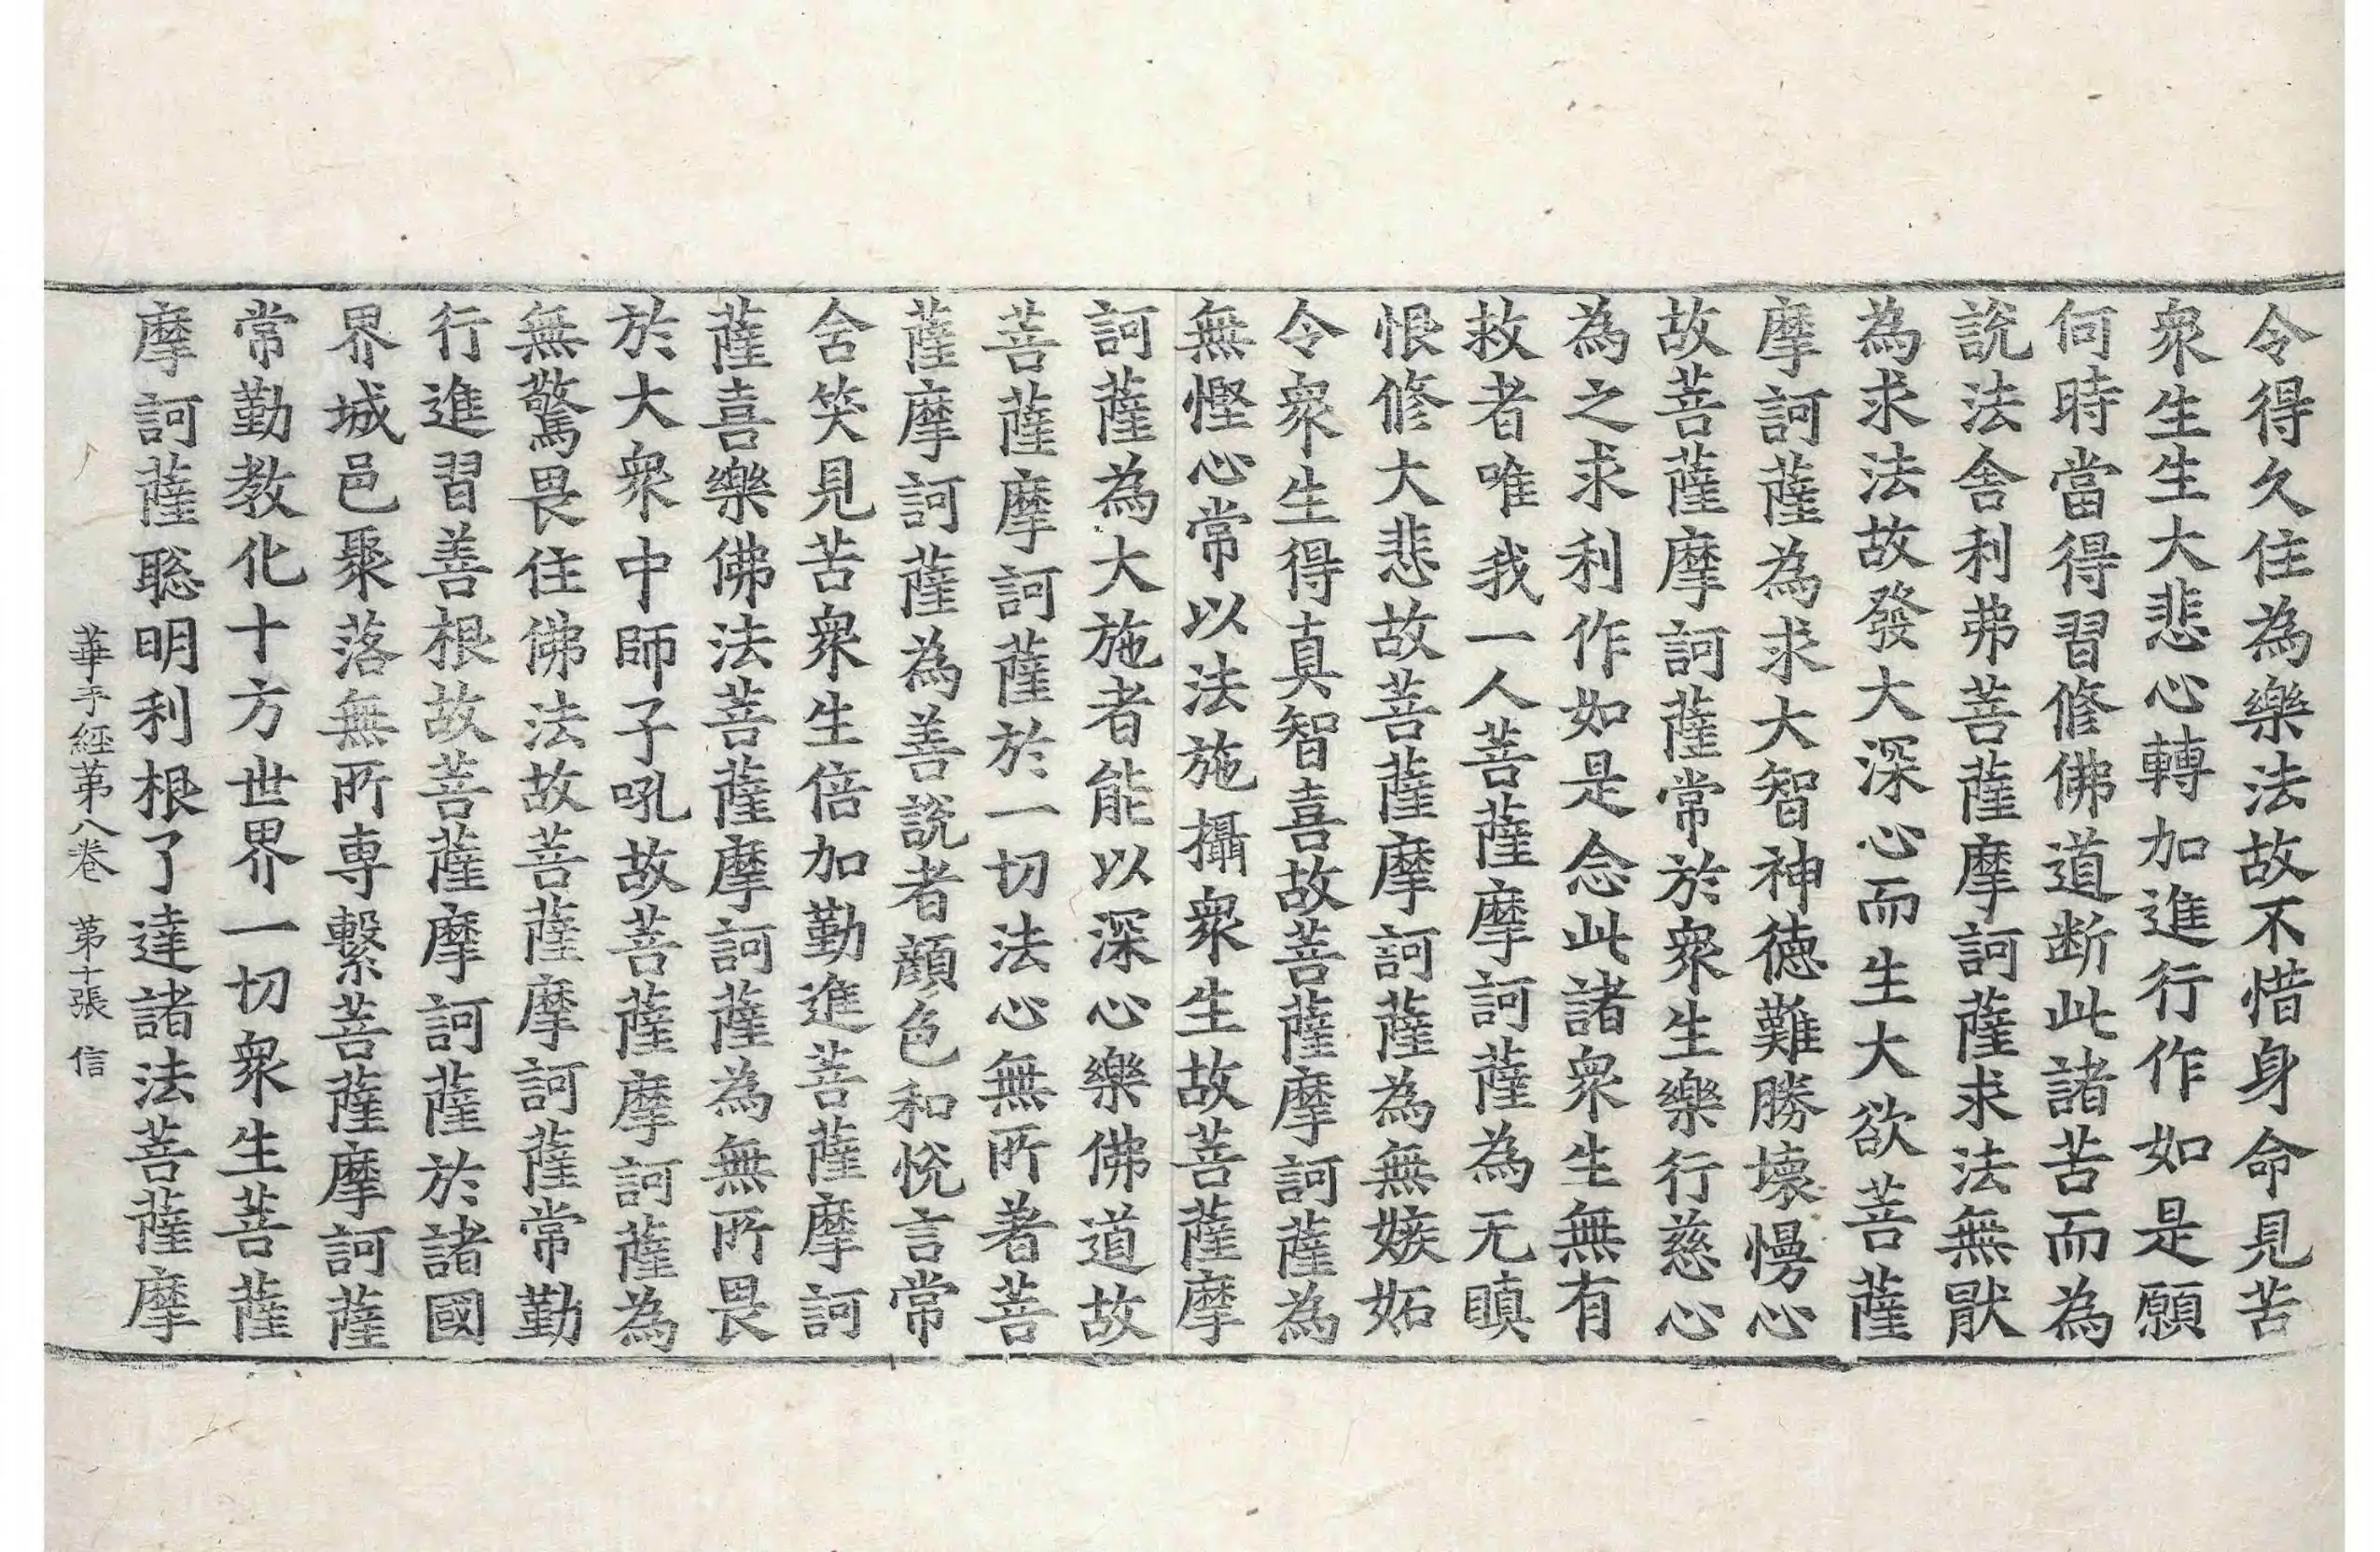 令得久住為樂法故不惜身命見苦
衆生生大悲心轉加進行作如是願
何時當得習修佛道断此諸苦而為
說法舎利弗菩薩摩訶薩求法無猒
為求法故發大深心而生大欲菩薩
摩訶薩為求大智神德難勝壞慢心
故菩薩摩訶薩常於衆生樂行慈心
為之求利作如是念此諸衆生無有
救者唯我一人菩薩摩訶薩為无瞋
恨修大悲故菩薩摩訶薩為無嫉妬
令衆生得真智喜故菩薩摩訶薩為
無慳心常以法施攝衆生故菩薩摩
訶薩為大施者能以深心樂佛道故
菩薩摩訶薩於一切法心無所著菩
薩摩訶薩為善說者顏色和悅言常
含笑見苦衆生倍加勤進菩薩摩訶
薩喜樂佛法菩薩摩訶薩為無所畏
於大衆中師子吼故菩薩摩訶薩為
無驚畏住佛法故菩薩摩訶薩常勤
行進習善根故菩薩摩訶薩於諸國
界城邑聚落無所專繫菩薩摩訶薩
常勤教化十方世界一切衆生菩薩
摩訶薩聡明利根了達諸法菩薩摩
華手經第八卷 第十張 信